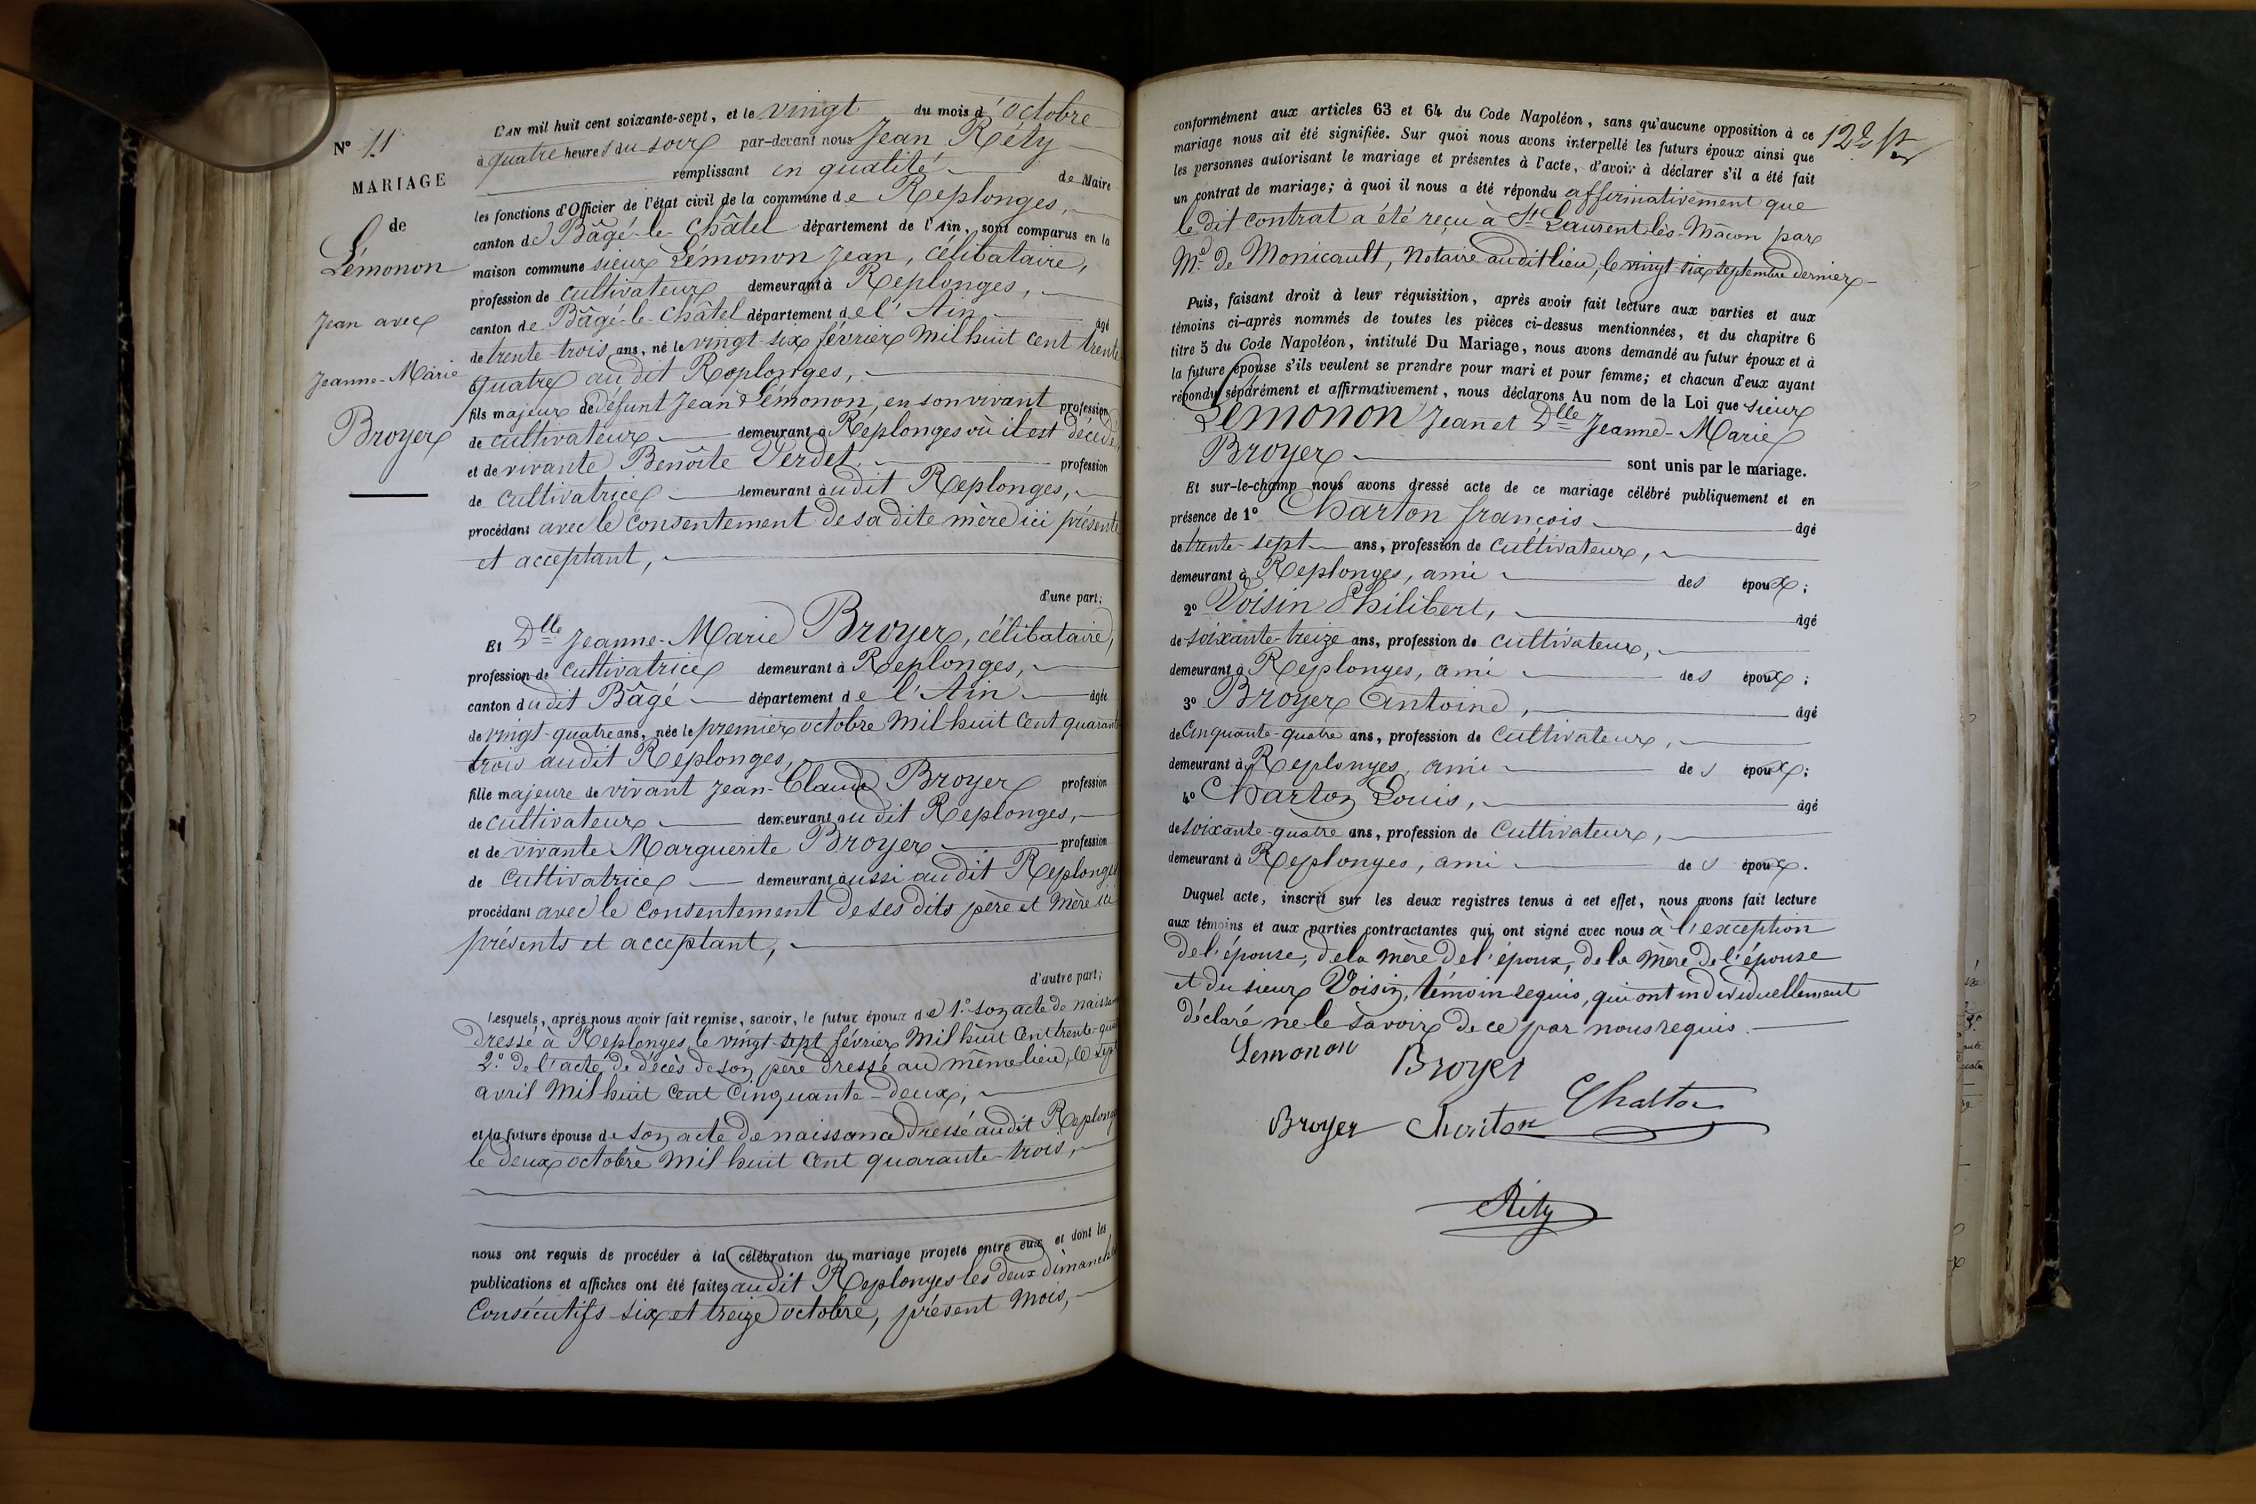 N° 11
MARIAGE
de
Lémonon
Jean avec
Jeanne-Marie
Broyer
L'AN mil huit cent soixante-sept, et le vingt du mois d'octobre
à quatre heures du soir par-devant nous Jean Réty
remplissant en qualité de Maire
les fonctions d'Officier de l'état civil de la commune de Replonges,
canton de Bâgé-le-Châtel département de l'Ain, sont comparus en la
maison commune sieur Lémonon Jean, célibataire,
profession de cultivateur demeurant à Replonges,
canton de Bâgé-le-Châtel département de l'Ain âgé
de trente-trois ans, né le vingt-six février mil huit cent trente-
quatre audit Replonges,
fils majeur de défunt Jean Lémonon, en son vivant profession
de cultivateur demeurant à Replonges où il est décédé,
et de vivante Benoîte Verdet profession
de cultivatrice demeurant audit Replonges,
procédant avec le consentement de sa dite mère ici présente
et acceptant,
d'une part;
Et Dlle Jeanne-Marie Broyer, célibataire,
profession de cultivatrice demeurant à Replonges,
canton dudit Bâgé département de l'Ain âgée
de vingt-quatre ans, née le premier octobre mil huit cent quarante
trois audit Replonges,
fille majeure de vivant Jean-Claude Broyer profession
de cultivateur demeurant audit Replonges,
et de vivante Marguerite Broyer profession
de cultivatrice demeurant aussi audit Replonges
procédant avec le consentement de ses dits père et mère ici
présents et acceptant,
d'autre part;
Lesquels, après nous avoir fait remise, savoir, le futur époux de 1° son acte de naissance
dressé à Replonges le vingt-sept février mil huit cent trente-quatre
2° de l'acte de décès de son père dressé au même lieu, le sept
avril mil huit cent cinquante-deux,
et la future épouse de son acte de naissance dressé audit Replonges
le deux octobre mil huit cent quarante-trois,
nous ont requis de procéder à la célébration du mariage projeté entre eux et dont les
publications et affiches ont été faites audit Replonges les deux dimanches
consécutifs six et treize octobre, présent mois,
conformément aux articles 63 et 64 du Code Napoléon, sans qu'aucune opposition à ce
mariage nous ait été signifiée. Sur quoi nous avons interpellé les futurs époux ainsi que
les personnes autorisant le mariage et présentes à l'acte, d'avoir à déclarer s'il a été fait
un contrat de mariage; à quoi il nous a été répondu affirmativement que
le dit contrat a été reçu à St Laurent-lès-Mâcon par
Me de Monicault, Notaire audit lieu, le vingt-six septembre dernier
Puis, faisant droit à leur réquisition, après avoir fait lecture aux parties et aux
témoins ci-après nommés de toutes les pièces ci-dessus mentionnées, et du chapitre 6
titre 5 du Code Napoléon, intitulé Du Mariage, nous avons demandé au futur époux et à
la future épouse s'ils veulent se prendre pour mari et pour femme; et chacun d'eux ayant
répondu séparément et affirmativement, nous déclarons Au nom de la Loi que sieur
Lémonon Jean et Dlle Jeanne-Marie
Broyer sont unis par le mariage.
Et sur-le-champ nous avons dressé acte de ce mariage célébré publiquement et en
présence de 1° Charton françois âgé
de trente-sept ans, profession de cultivateur,
demeurant à Replonges, ami des époux;
2° Voisin Philibert, âgé
de soixante-treize ans, profession de cultivateur,
demeurant à Replonges, ami des époux;
3° Broyer Antoine, âgé
de cinquante-quatre ans, profession de cultivateur,
demeurant à Replonges, ami des époux;
4° Charton Louis, âgé
de soixante-quatre ans, profession de cultivateur,
demeurant à Replonges, ami des époux.
Duquel acte, inscrit sur les deux registres tenus à cet effet, nous avons fait lecture
aux témoins et aux parties contractantes qui ont signé avec nous à l'exception
de l'épouse, de la mère de l'époux, de la mère de l'épouse
et du sieur Voisin, témoin requis, qui ont individuellement
déclaré ne le savoir de ce par nous requis.
Lemonon Broyer
Broyer Charton Charton
Réty